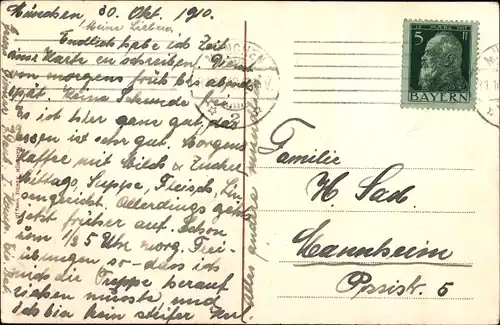 München 30. Okt. 1910.
Meine Lieben!
Endlich habe ich Zeit
eine Karte zu schreiben. Dienst
von morgens früh bis abends
spät. Keine Stunde frei
Es ist hier ganz gut, das
Essen ist sehr gut. Morgens
Kaffee mit Milch & Zucker
Mittags, Suppe, Fleisch,
Allerdings gehts
jetzt früher auf. Schon
um 1/2 5 Uhr morg. Frei-
übungen so - dass ich
mich die Treppe herauf
ziehen musste und
ich bin kein steifer Kerl.
alles andere mündlich
MÜNCHEN
5
BAYERN
Familie
H Sad.
Mannheim
5